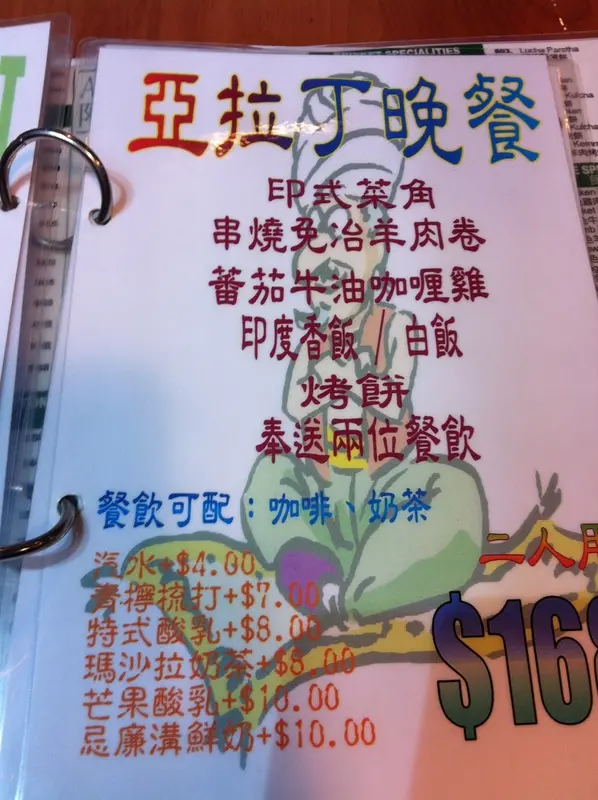 亞拉丁晚餐
印式菜角
串燒免冶羊肉卷
蕃茄牛油咖喱雞
印度香飯 / 白飯
烤餅
奉送兩位餐飲
餐飲可配：咖啡、奶茶
汽水+$4.00
青檸梳打+$7.00
特式酸乳+$8.00
瑪沙拉奶茶+$8.00
芒果酸乳+$10.00
忌廉溝鮮奶+$10.00
二人用
$168
SPECIALITIES
Lucha Paratha
Kulcha
Kulcha